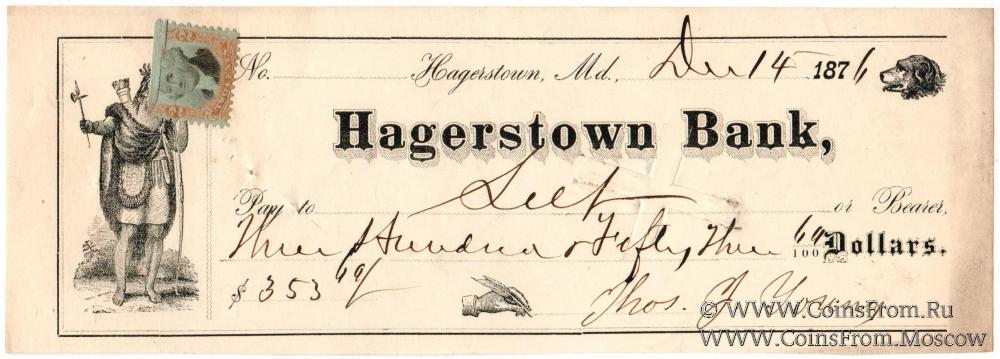 No. Hagerstown, Md., Dec 14 1876
Hagerstown Bank,
Pay to Self or Bearer,
Three Hundred & Fifty Three /100 Dollars.
$ 353
Thos. J. Young
© www.CoinsFrom.Ru
www.CoinsFrom.Moscow